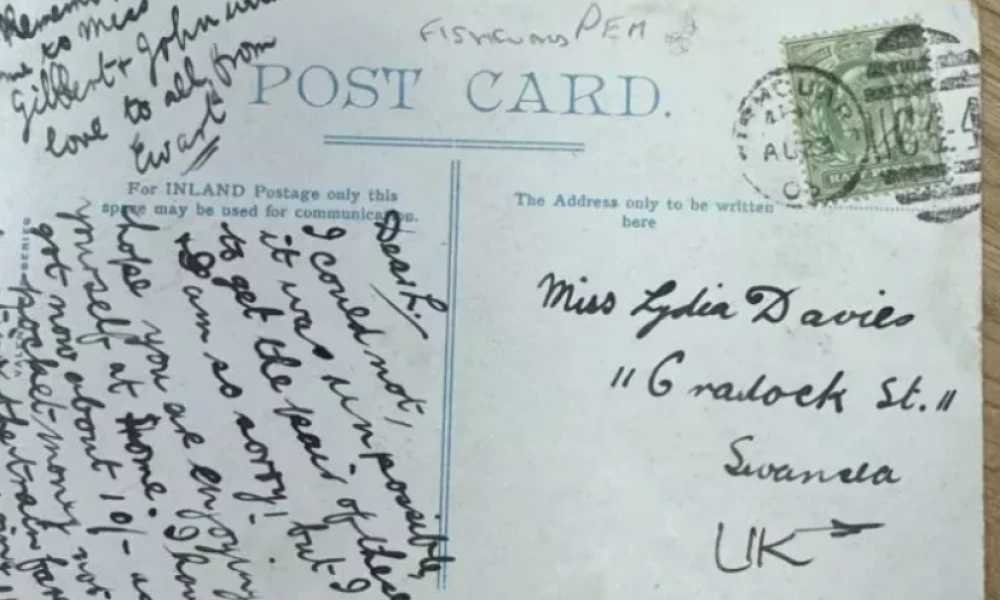 Rememb
me to Miss
Gilbert & John
love to all from
Ewart
FISHGUARD PEM
POST CARD.
For INLAND Postage only this
space may be used for communication.
The Address only to be written
here
AU 23
HALFPENNY
Dear L.,
I could not,
it was unpossible,
to get the pair of these
I am so sorry! but I
hope you are enjoying
yourself at home. I
got now about 10/-
pocket-mony not
the train far
Miss Lydia Davies
"Cradock St."
Swansea
UK